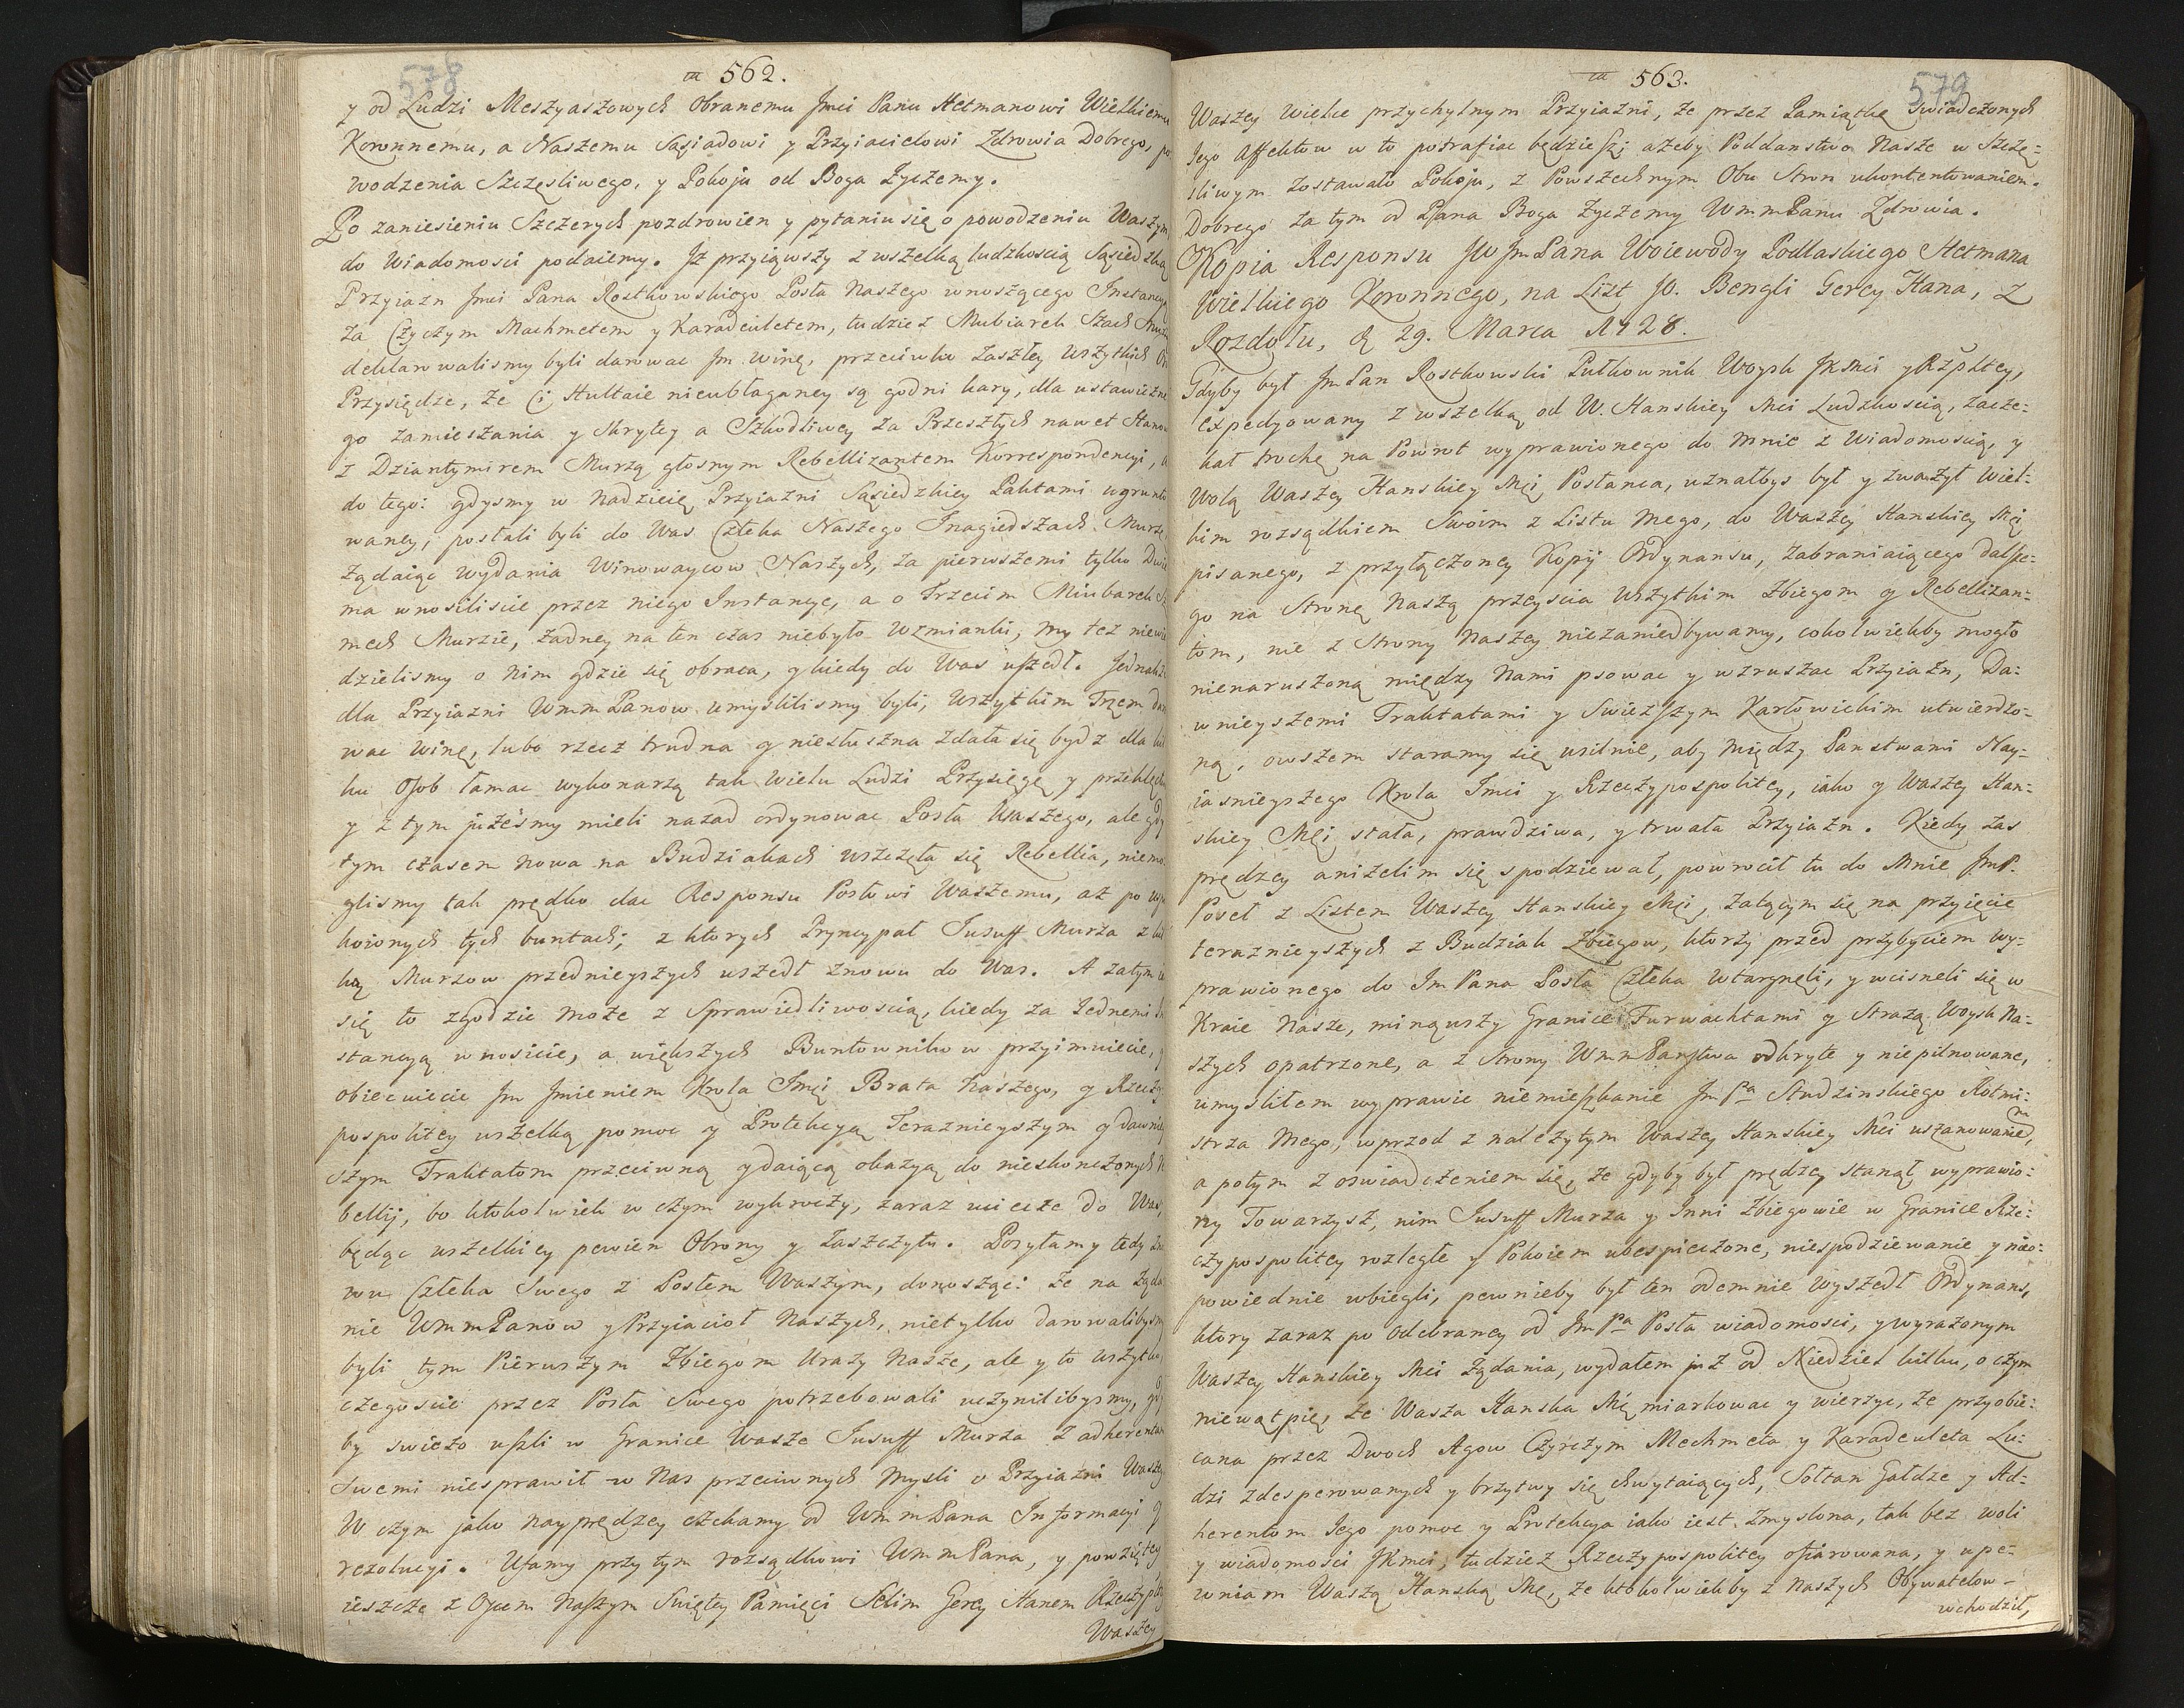 578
562.
y od Ludzi Meszyaszowych obranemu Jmci Panu Hetmanowi Wielkiemu
Koronnemu, a Naszemu Sąsiadowi y Przyiacielowi Zdrowia Dobrego, po
wodzenia Szczęsliwego, y Pokoju od Boga Życzemy.
Po zaniesieniu Szczerych pozdrowien y pytaniu się o powodzeniu Waszym
do Wiadomosci podaiemy. Jż przyiąwszy z wszelką ludzkoscią Sąsiedzką
Przyiazn Jmci Pana Rostkowskiego Posła Naszego wnoszącego Instancyą
za Czyczym Machmetem y Karadeuletem, tudziesz Mubiarek Szach
deklarowalismy byli darowac Jm winę, przeciwko zaszłey wszytkich
Przysiędze, że Ci Hultaie nieubłaganey są godni kary, dla ustawiczne
go zamieszania y skrytey a Szkodliwey za Przeszłych nawet Hanow
z Dziantymirem Murzą głosnym Rebellizantem Korrespondencyi,
do tego: gdysmy w nadzieię Przyiazni Sąsiedzkiey Paktami ugrunto
waney, posłali byli do Was Człeka Naszego Inagiedszach Murzę,
żądaiąc wydania Winowaycow Naszych, za pierwszemi tylko Dwie
ma wnosiliscie przez niego Instancyę, a o Trzecim Miubarek
mech Murzie, żadney na ten czas niebyło wzmianki, my też niewie
dzielismy o nim gdzie się obraca, y kiedy do Was uszedł. Jednakże
dla Przyiazni WmmPanow umyslilismy byli, wszytkim Trzem daro
wac winę, lubo rzecz trudna y niesłuszna zdała się bydz dla kil
ku Osob łamac wykonaną tak wielu Ludzi Przysięgę y przeklęctwo
y z tym jużesmy mieli nazad ordynowac Posła Waszego, ale gdy
tym czasem nowa na Budziakach wszczęła się Rebellia, niemo
glismy tak prędko dac Responsu Posłowi Waszemu, aż po uspo
koionych tych buntach, z ktorych Pryncypał Jusuff Murza z kil
ką Murzow przednieyszych uszedł znowu do Was. A zatym
się to zgodzic może z Sprawiedliwoscią, kiedy za Jednemi In
stancyą wnosicie, a większych Buntownikow przyimuiecie,
obiecuiecie Jm Jmieniem Krola Jmci Brata Naszego, y Rzeczy
pospolitey wszelką pomoc y Protekcyą Terazniejszym y dawniey
szym Traktatom przeciwną y daiącą okazyą do nieskonczonych Re
bellij, bo ktokolwiek w czym wykroczy, zaraz uciecze do Was,
będąc wszelkiey pewien Obrony y Zaszczytu. Posyłamy tedy zno
wu Człeka Swego z Posłem Waszym, donosząc: że na żąda
nie WmmPanow y Przyiacioł Naszych, nietylko darowalibysmy
byli tym Pierwszym Zbiegom Urazy Nasze, ale y to wszytko
czegoscie przez Posła Swego potrzebowali uczynilibysmy, gdy
by swieżo uszli w Granice Wasze Jusuff Murza z adherentami
Swemi niesprawił w Nas przeciwnych Mysli o Przyiazni Waszey
W czym jako nayprędzey czekamy od WmmPana Informacyi y
rezolucyi. Ufamy przy tym rozsądkowi WmmPana, y powziętey
ieszcze z Oycem Naszym Swiętey Pamięci Selim Gerey Hanem Rzeczyplitey
Waszey
579
563.
Waszey wielce przychylnym Przyiazni, że przez Pamiątkę swiadczonych
Jego Affektow w to potrafiac będziesz, ażeby Poddanstwo Nasze w Szczę-
sliwym zostawało Pokoju, z Powszechnym Obu Stron ukontentowaniem.
Dobrego za tym od Pana Boga życzemy WmmPanu Zdrowia.
Kopia Responsu JW JmPana Woiewody Podlaskiego Hetmana
Wielkiego Koronnego, na List JO. Bengli Gerey Hana, z
Rozdołu, d 29. Marca 1728.
Gdyby był JmPan Rostkowski Pułkownik Woysk JKMci y Rzpltey,
expedyowany z wszelką od W. Hanskiey Mci Ludzkoscią, zacze-
kał trochę na Powrot wyprawionego do mnie z Wiadomoscią, y
wolą Waszey Hanskiey Mci Posłanca, uznałbys był y zważył wiel-
kim rozsądkiem Swoim z Listu mego, do Waszey Hanskiey Mci
pisanego, z przyłączoney Kopij Ordynansu, zabraniaiącego dalsze-
go na Stronę Naszą przeyscia wszytkim Zbiegom y Rebellizan-
tom, nic z Strony Naszey niezaniedbywamy, cokolwiekby mogło
nienaruszoną między Nami psowac y wzruszac Przyiazn, Da-
wnieyszemi Traktatami y Swieższym Karłowickim utwierdzo-
ną, owszem staramy się usilnie, aby między Panstwami Nay-
iasnieyszego Krola Jmci y Rzeczypospolitey, iako y Waszey Han-
skiey Mci stała, prawdziwa, y trwała Przyiazn. Kiedy zas
prędzey aniżelim się spodziewał, powrocił tu do Mnie JmP.
Poseł z Listem Waszey Hanskiey Mci, żalącym się na przyięcie
teraznieyszych z Budziak Zbiegow, ktorzy przed przybyciem wy-
prawionego do Jm Pana Posła Człeka wtargnęli, y wcisneli się w
Kraie Nasze, minąwszy Granice Furwachtami y Strażą Woysk Na-
szych opatrzone, a z Strony WmmPanstwa odkryte y niepilnowane,
umysliłem wyprawic niemieszkanie JmPa Studzinskiego Rotmi-
strza Mego, wprzod z należytym Waszey Hanskiey Mci uszanowaniem,
a potym z oswiadczeniem się, że gdyby był prędzey stanął wyprawio-
ny Towarzysz, nim Jusuff Murza y Inni Zbiegowie w Granice Rze-
czypospolitey rozległe y Pokoiem ubespieczone, niespodziewanie y nieo-
powiednie wbiegli, pewnieby był ten odemnie wyszedł Ordynans,
ktory zaraz po odebraney od JmPa Posła wiadomosci, y wyrażonym
Waszey Hanskiey Mci żądania, wydałem już od Niedziel kilku, o czym
niewątpię, że Wasza Hanska Mć miarkowac y wierzyc, że przyobie-
cana przez Dwoch Agow Czyrczym Mechmeta y Karadeuleta Lu-
dzi zdesperowanych y brzytwy się chwytaiących, Sołtan Gałdze y Ad-
herentom Jego pomoc y Protekcya iako iest zmyslona, tak bez woli
y wiadomosci JKmci, tudziesz Rzeczypospolitey ofiarowana, y upe-
wniam Waszą Hanską Mć, że ktokolwiekby z Naszych Obywatelow-
wchodził,